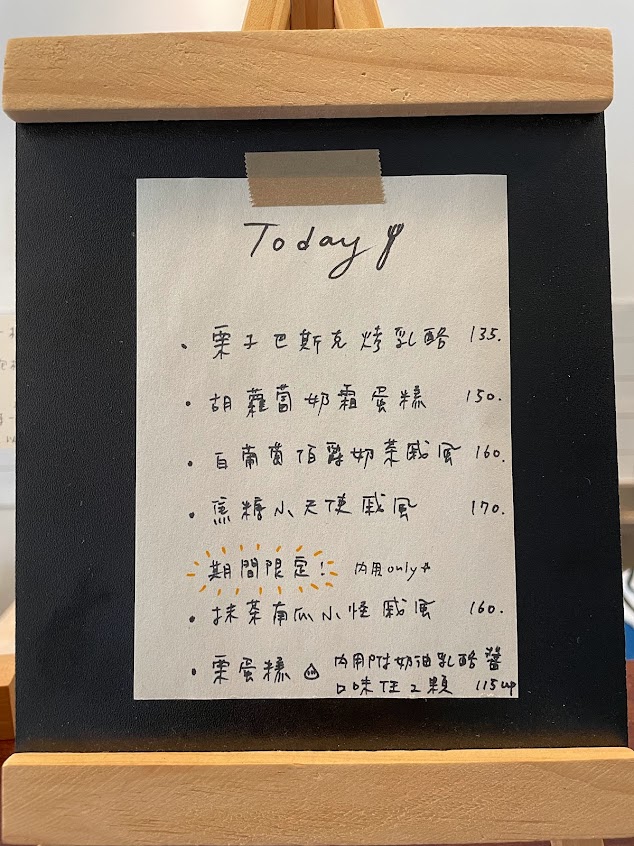 Today
· 栗子巴斯克烤乳酪 135.
· 胡蘿蔔奶霜蛋糕 150.
· 白葡萄伯爵奶茶戚風 160.
· 焦糖小天使戚風 170.
期間限定! 內用only
· 抹茶南瓜小怪戚風 160.
· 栗蛋糕 內用附奶油乳酪醬
口味任2顆 115up